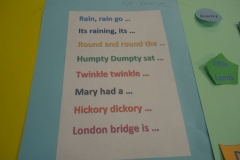 Rain, rain go ...
Its raining, its ...
Round and round the ...
Humpty Dumpty sat ...
Twinkle twinkle ...
Mary had a ...
Hickory dickory ...
London bridge is ...